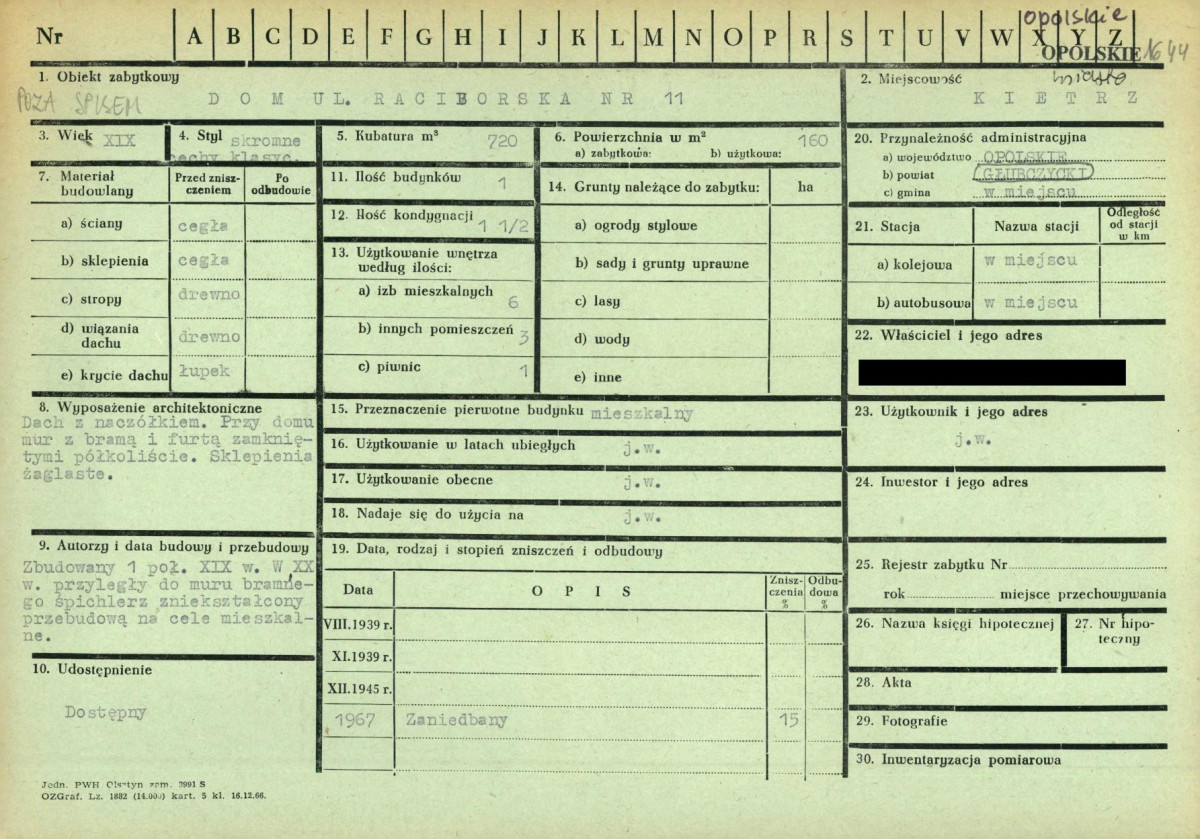 opolskie
Nr A B C D E F G H I J K L M N O P R S T U V W X Y Z
OPOLSKIE 1644
1. Obiekt zabytkowy
POZA SPISEM
DOM UL. RACIBORSKA NR 11
2. Miejscowość miasto
KIETRZ
3. Wiek XIX
4. Styl skromne
cechy klasyc.
5. Kubatura m³ 720
6. Powierzchnia w m² 160
a) zabytkowa: b) użytkowa:
7. Materiał budowlany
Przed zniszczeniem
Po odbudowie
a) ściany cegła
b) sklepienia cegła
c) stropy drewno
d) wiązania dachu drewno
e) krycie dachu łupek
8. Wyposażenie architektoniczne
Dach z naczółkiem. Przy domu
mur z bramą i furtą zamknię-
tymi półkoliście. Sklepienia
żaglaste.
9. Autorzy i data budowy i przebudowy
Zbudowany 1 poł. XIX w. W XX
w. przyległy do muru bramne-
go śpichlerz zniekształcony
przebudową na cele mieszkal-
ne.
10. Udostępnienie
Dostępny
11. Ilość budynków 1
12. Ilość kondygnacji
1 1/2
13. Użytkowanie wnętrza
według ilości:
a) izb mieszkalnych 6
b) innych pomieszczeń 3
c) piwnic 1
14. Grunty należące do zabytku: ha
a) ogrody stylowe
b) sady i grunty uprawne
c) lasy
d) wody
e) inne
15. Przeznaczenie pierwotne budynku mieszkalny
16. Użytkowanie w latach ubiegłych j.w.
17. Użytkowanie obecne j.w.
18. Nadaje się do użycia na j.w.
19. Data, rodzaj i stopień zniszczeń i odbudowy
Data OPIS Zniszczenia % Odbudowa %
VIII.1939 r.
XI.1939 r.
XII.1945 r.
1967 Zaniedbany 15
20. Przynależność administracyjna
a) województwo OPOLSKIE
b) powiat GŁUBCZYCKI
c) gmina w miejscu
21. Stacja Nazwa stacji Odległość od stacji w km
a) kolejowa w miejscu
b) autobusowa w miejscu
22. Właściciel i jego adres
23. Użytkownik i jego adres
j.w.
24. Inwestor i jego adres
25. Rejestr zabytku Nr
rok miejsce przechowywania
26. Nazwa księgi hipotecznej
27. Nr hipo-
teczny
28. Akta
29. Fotografie
30. Inwentaryzacja pomiarowa
Jedn. PWH Olsztyn zam. 3991 S
OZGraf. Lz. 1882 (14.000) kart. 5 kl. 16.12.66.